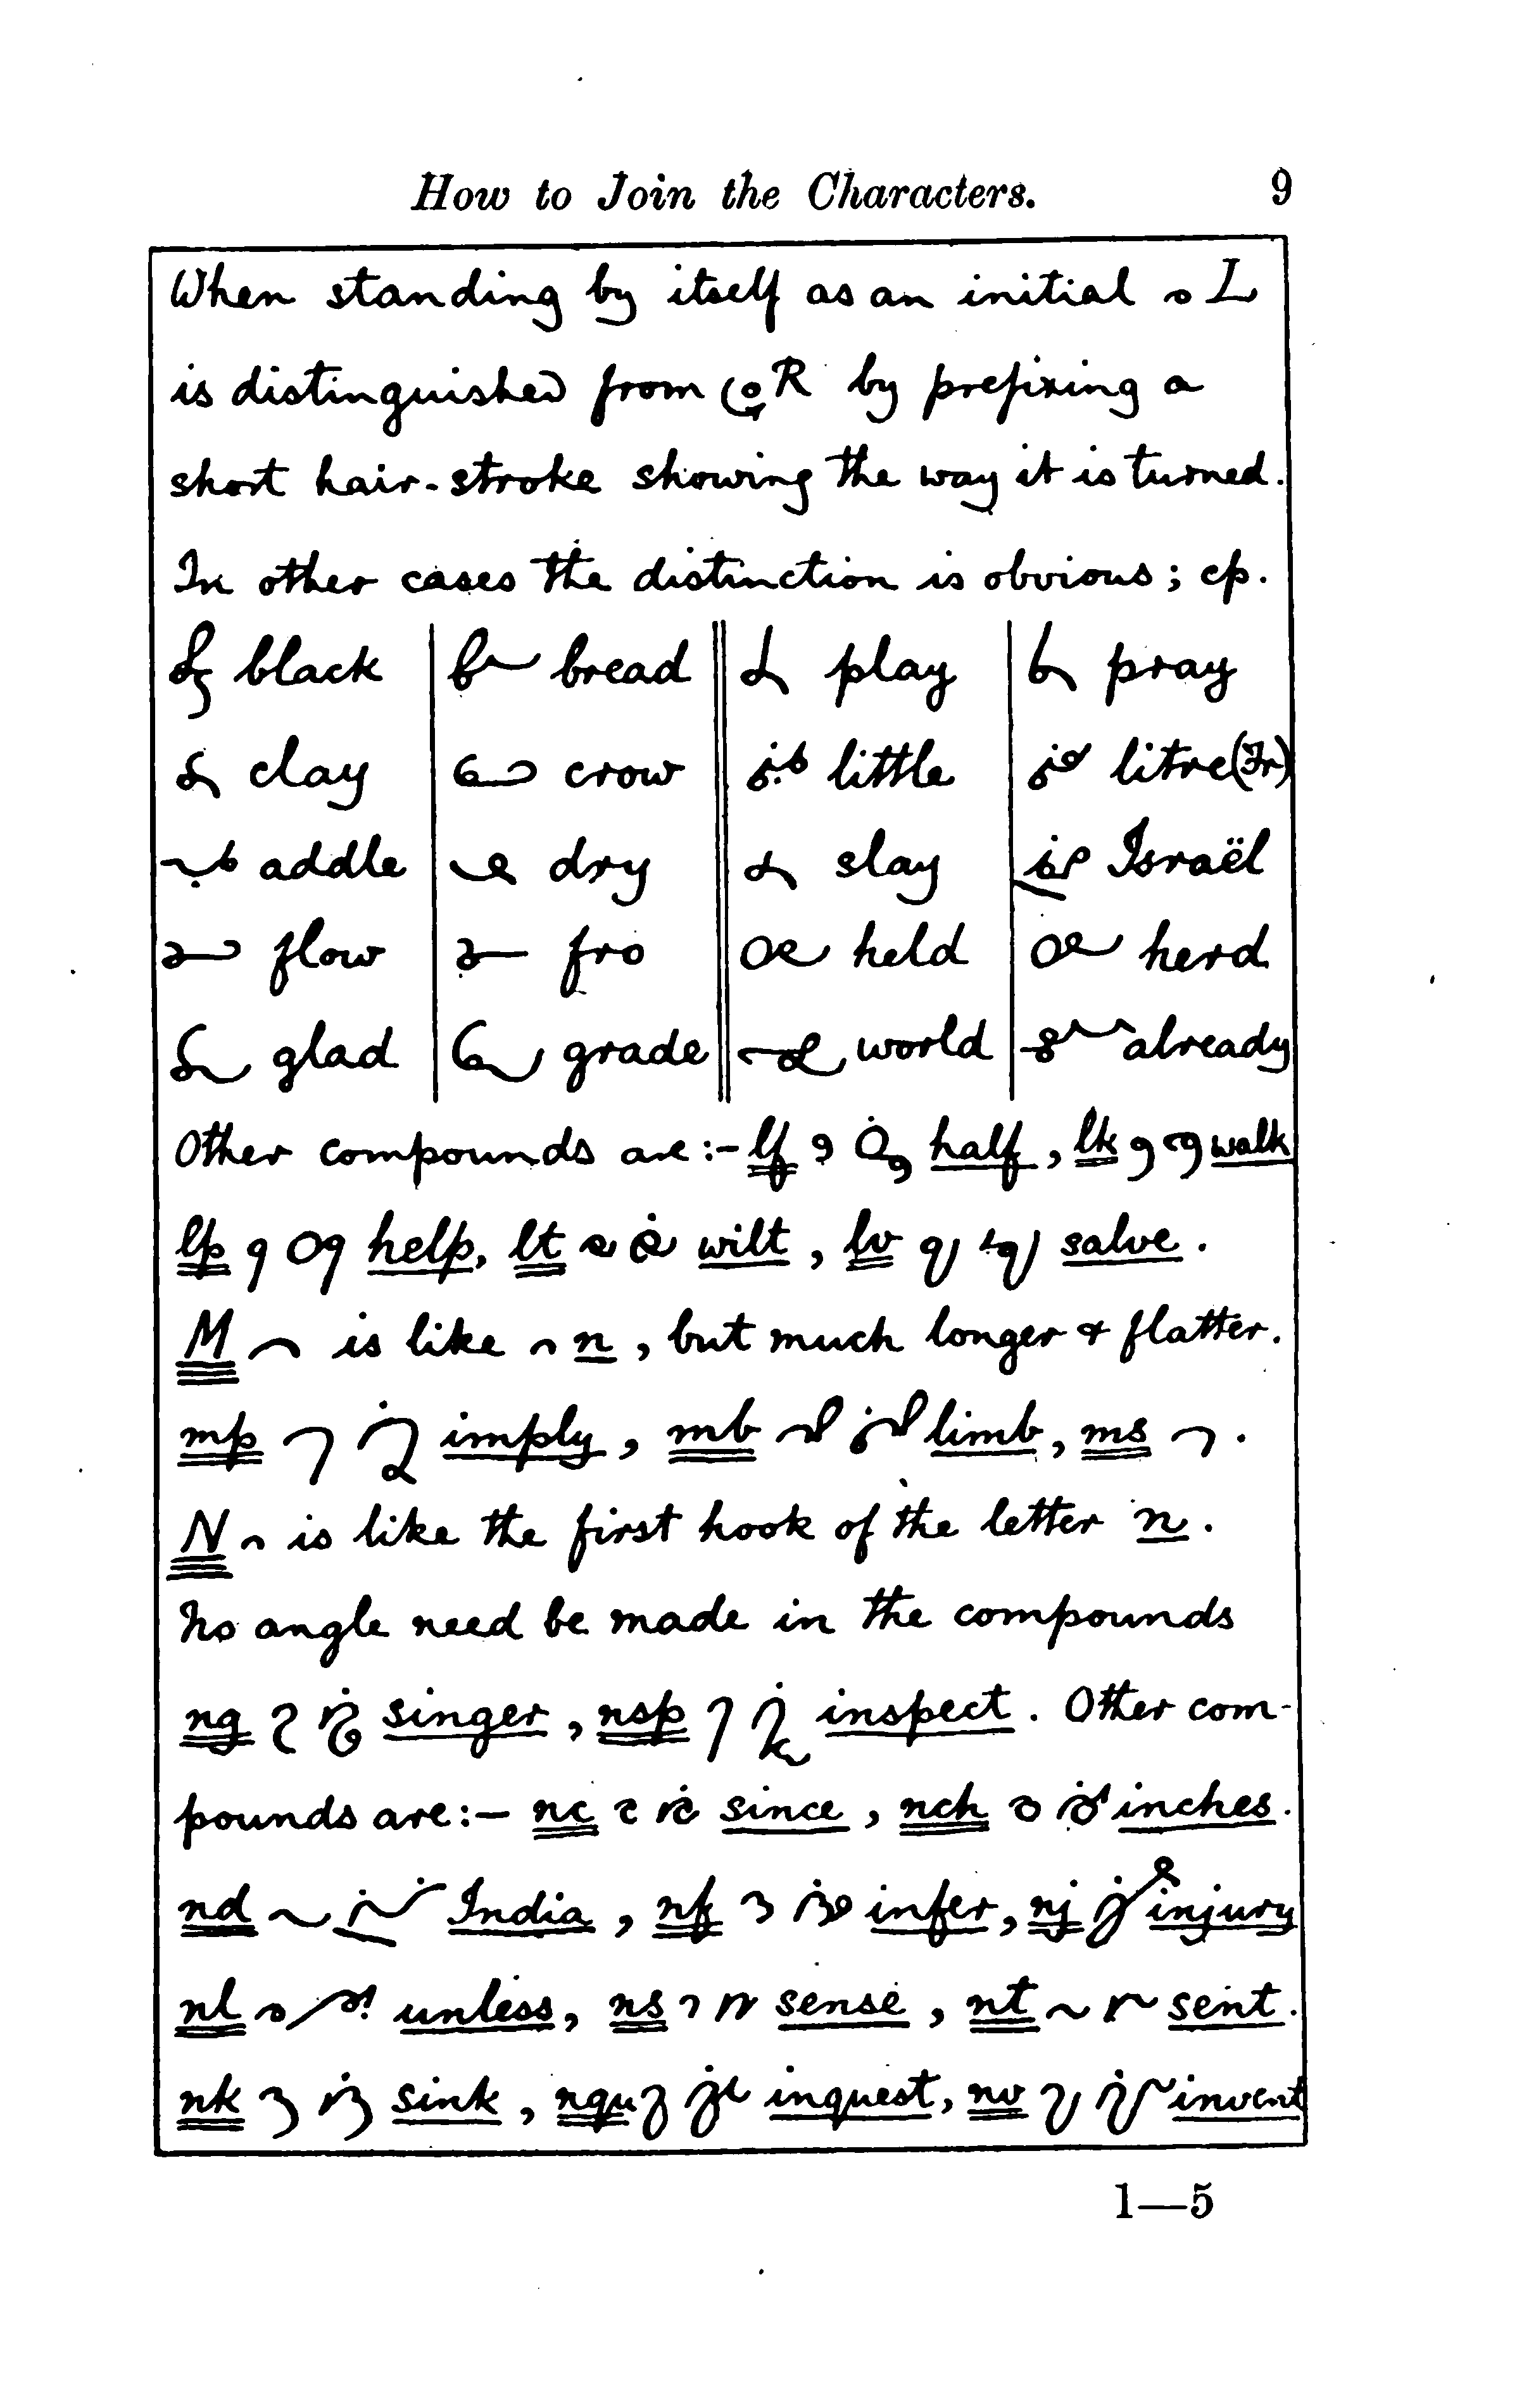 How to Join the Characters. 9
When standing by itself as an initial L
is distinguished from R by prefixing a
short hair-stroke showing the way it is turned.
In other cases the distinction is obvious; cp.
black bread play pray
clay crow little litre (Fr)
addle dry slay Israël
flow fro held herd
glad grade world already
Other compounds are:- lf half, lk walk
lp help, lt wilt, lv salve.
M is like n, but much longer & flatter.
mp imply, mb limb, ms .
N is like the first hook of the letter n.
No angle need be made in the compounds
ng singer, nsp inspect. Other com-
pounds are:— nc since, nch inches.
nd India, nf infer, nj injury
nl unless, ns sense, nt sent.
nk sink, nqu inquest, nv invent
1—5